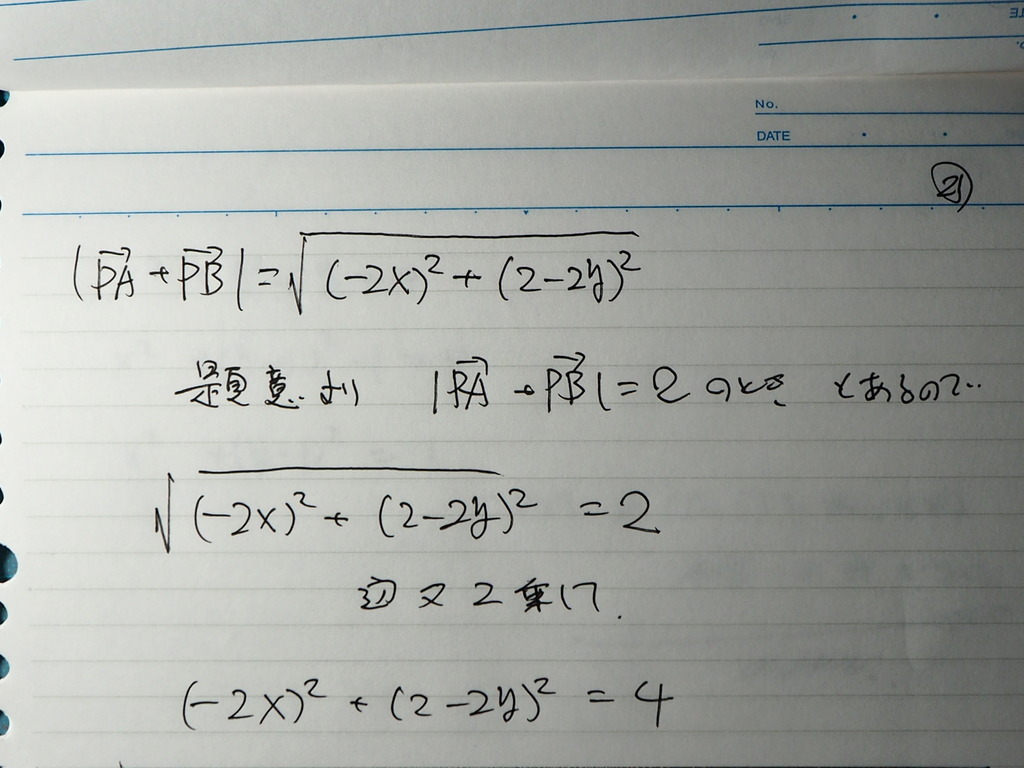 No.
DATE
21
|PA→ + PB→| = √((-2x)² + (2-2y)²)
題意より |PA→ + PB→| = 2 のとき とあるので..
√((-2x)² + (2-2y)²) = 2
辺々2乗して
(-2x)² + (2-2y)² = 4